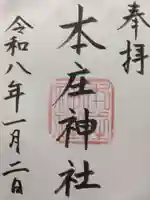 奉拝
本庄神社
令和八年一月二日